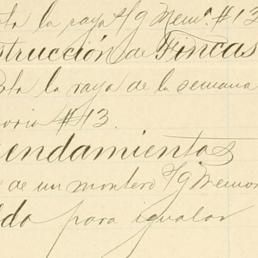 la raya s/g Memo. #13
strucción de Fincas
la raya de la semana
orio #13.
endamientos
de un montero s/g Memor
do para igualar